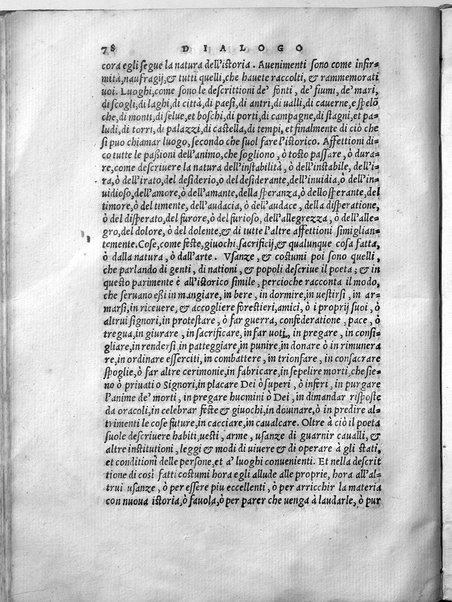 78 DIALOGO
cora egli segue la natura dell'istoria. Auenimenti sono come infir=
mità, naufragij, & tutti quelli, che hauete raccolti, & rammemorati
uoi. Luoghi, come sono le descrittioni de' fonti, de' fiumi, de' mari,
di scogli, di laghi, di città, di paesi, di antri, di ualli, di cauerne, e spelō
che, di monti, di selue, et boschi, di porti, di campagne, di stagni, et pa=
ludi, di torri, di palazzi, di castella, di tempi, et finalmente di ciò che
si puo chiamar luogo, secondo che suol fare l'istorico. Affettioni di=
co tutte le passioni dell'animo, che sogliono, ò tosto passare, ò dura=
re, come descriuere la natura dell'instabilità, ò dell'instabile, dell'i=
ra, ò dell'irato, del desiderio, ò del desiderante, dell'inuidia, ò dell'in=
uidioso, dell'amore, ò dell'amante, della speranza, ò dello sperante, del
timore, ò del temente, dell'audacia, ò dell'audace, della disperatione,
ò del disperato, del furore, ò del furioso, dell'allegrezza, ò dell'alle=
gro, del dolore, ò del dolente, & di tutte l'altre affettioni simiglian=
temente. Cose, come feste, giuochi, sacrificij, & qualunque cosa fatta,
ò dalla natura, ò dall'arte. Vsanze, & costumi poi sono quelli,
che parlando di genti, di nationi, & popoli descriue il poeta; & in
questo parimente è all'istorico simile, percioche racconta il modo,
che seruano essi in mangiare, in bere, in dormire, in uestirsi, in ar=
marsi, in riceuere, & accogliere forestieri, amici, ò i proprij suoi, ò
altrui signori, in protestare, ò far guerra, confederatione, pace, ò
tregua, in giurare, in sacrificare, in far uoti, in pregare, in consi=
gliare, in rendersi, in patteggiare, in punire, in donare ò in rimunera
re, in ordinare esserciti, in combattere, in trionfare, in consacrare
spoglie, ò far altre cerimonie, in fabricare, in sepelire morti, che sie=
no ò priuati o Signori, in placare Dei ò superi, ò inferi, in purgare
l'anime de' morti, in pregare huomini ò Dei, in dimandar risposta
da oracoli, in celebrar feste & giuochi, in douinare, ò in predire al=
trimenti le cose future, in cacciare, in caualcare. Oltre à ciò il poeta
suole descriuere habiti, uesti, arme, usanze di guarnir caualli, &
altre institutioni, leggi & modi di uiuere & di operare à gli stati,
et conditioni delle persone, et a' luoghi conuenienti. Et nella descrit
tione di così fatti costumi hora egli allude alle proprie, hora all'al=
trui usanze, ò per essere piu eccellenti, ò per arricchir la materia
con nuoua istoria, ò fauola, ò per parer che uenga à laudarle, ò pur